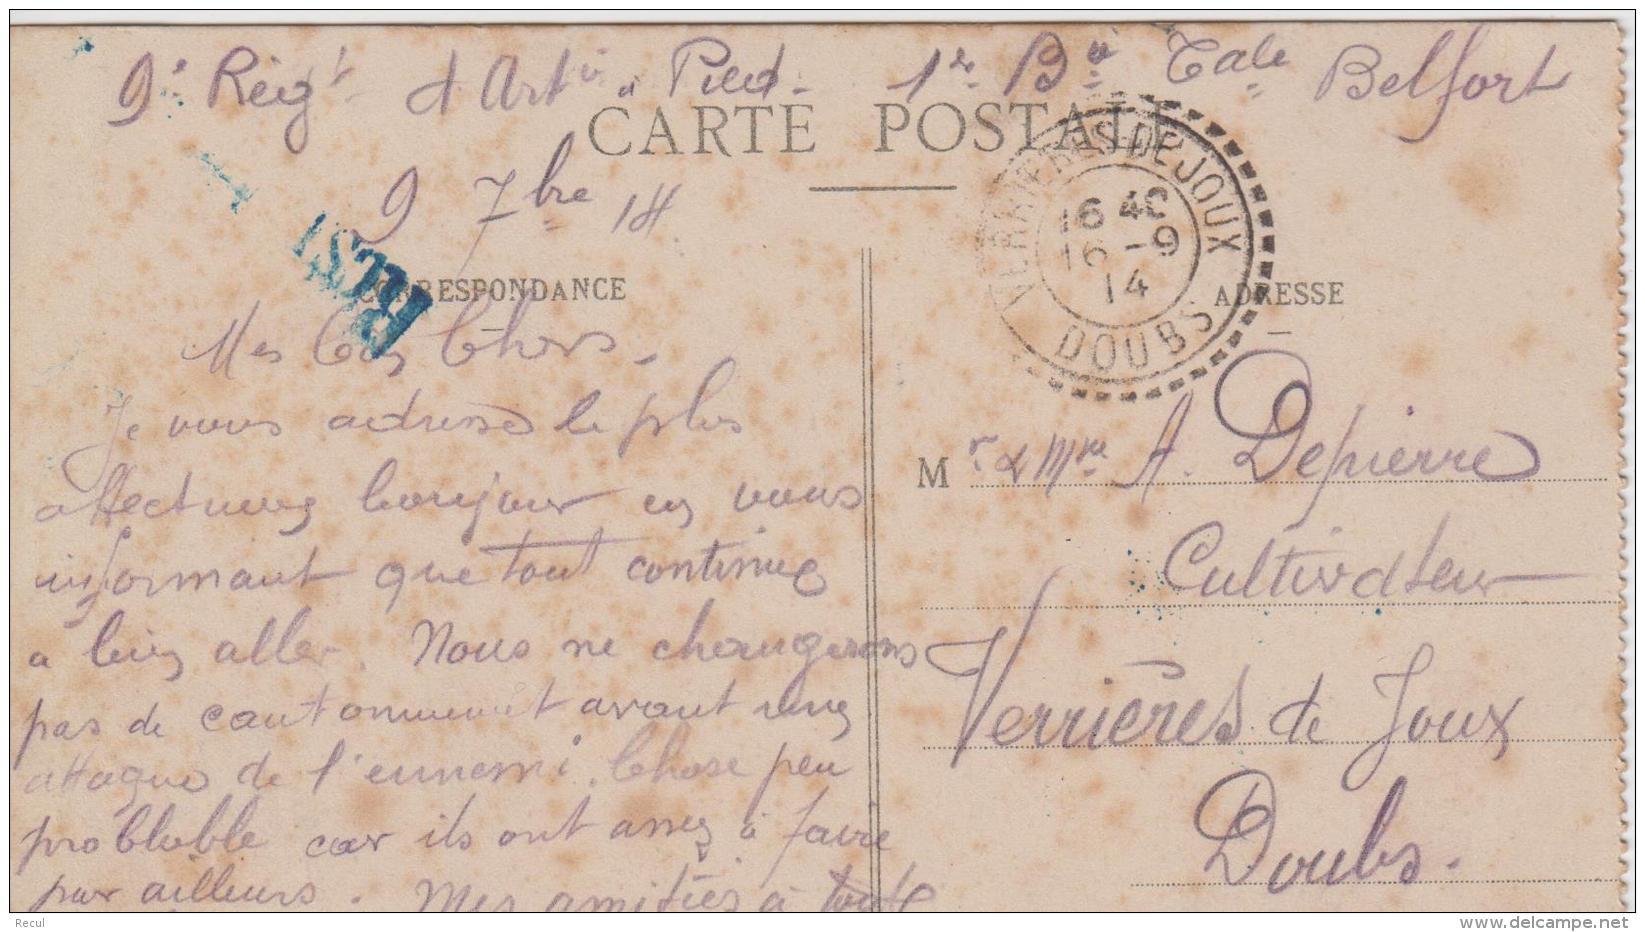 9e Régt d'Artie à Pied. 1re Bie Tale Belfort
CARTE POSTALE
9 7bre 14
CORRESPONDANCE
Mes Chers.
Je vous adresse le plus
affectueux bonjour en vous
informant que tout continue
a bien aller. Nous ne changerons
pas de cantonnement avant une
attaque de l'ennemi. Chose peu
probluble car ils ont assez à faire
par ailleurs. Mes amitiés à toute
VERRIERES-DE-JOUX
16 40
16 -9
14
DOUBS
ADRESSE
Mr & Mme A. Depierre
Cultivateur
Verrières de Joux
Doubs.
Recul
delcampe.net